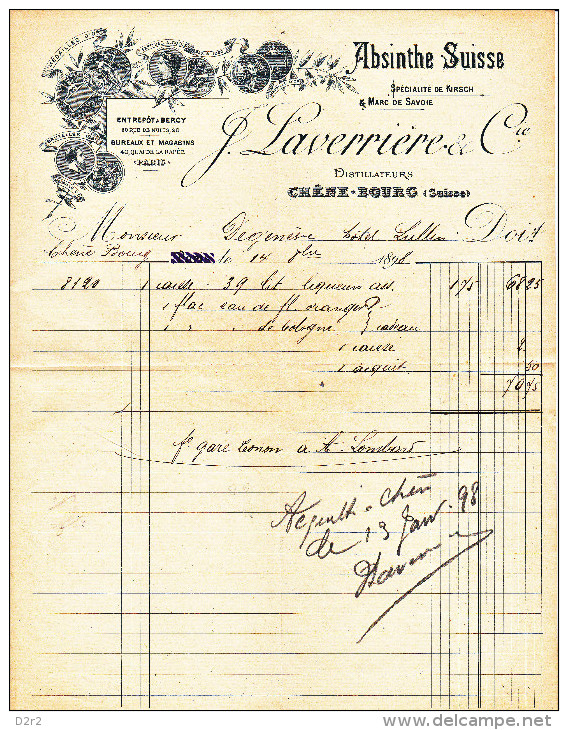 Absinthe Suisse
SPÉCIALITÉ DE KIRSCH
& MARC DE SAVOIE
ENTREPÔT À BERCY
BUREAUX ET MAGASINS
40, QUAI DE LA RAPÉE
PARIS
J. Laverrière & Cie
DISTILLATEURS
CHÊNE-BOURG (Suisse)
Monsieur Degenève hôtel Lullin Doit
Chêne Bourg le 14 1898
8120 1 caisse 39 lit liqueurs ass. 175 6825
1 flac eau de fl. oranger
1 " " de Cologne } cadeau
1 caisse 2.
1 acquit 50
7075
gare Tonon a
de 13 Janv. 98
D2r2
delcampe.net